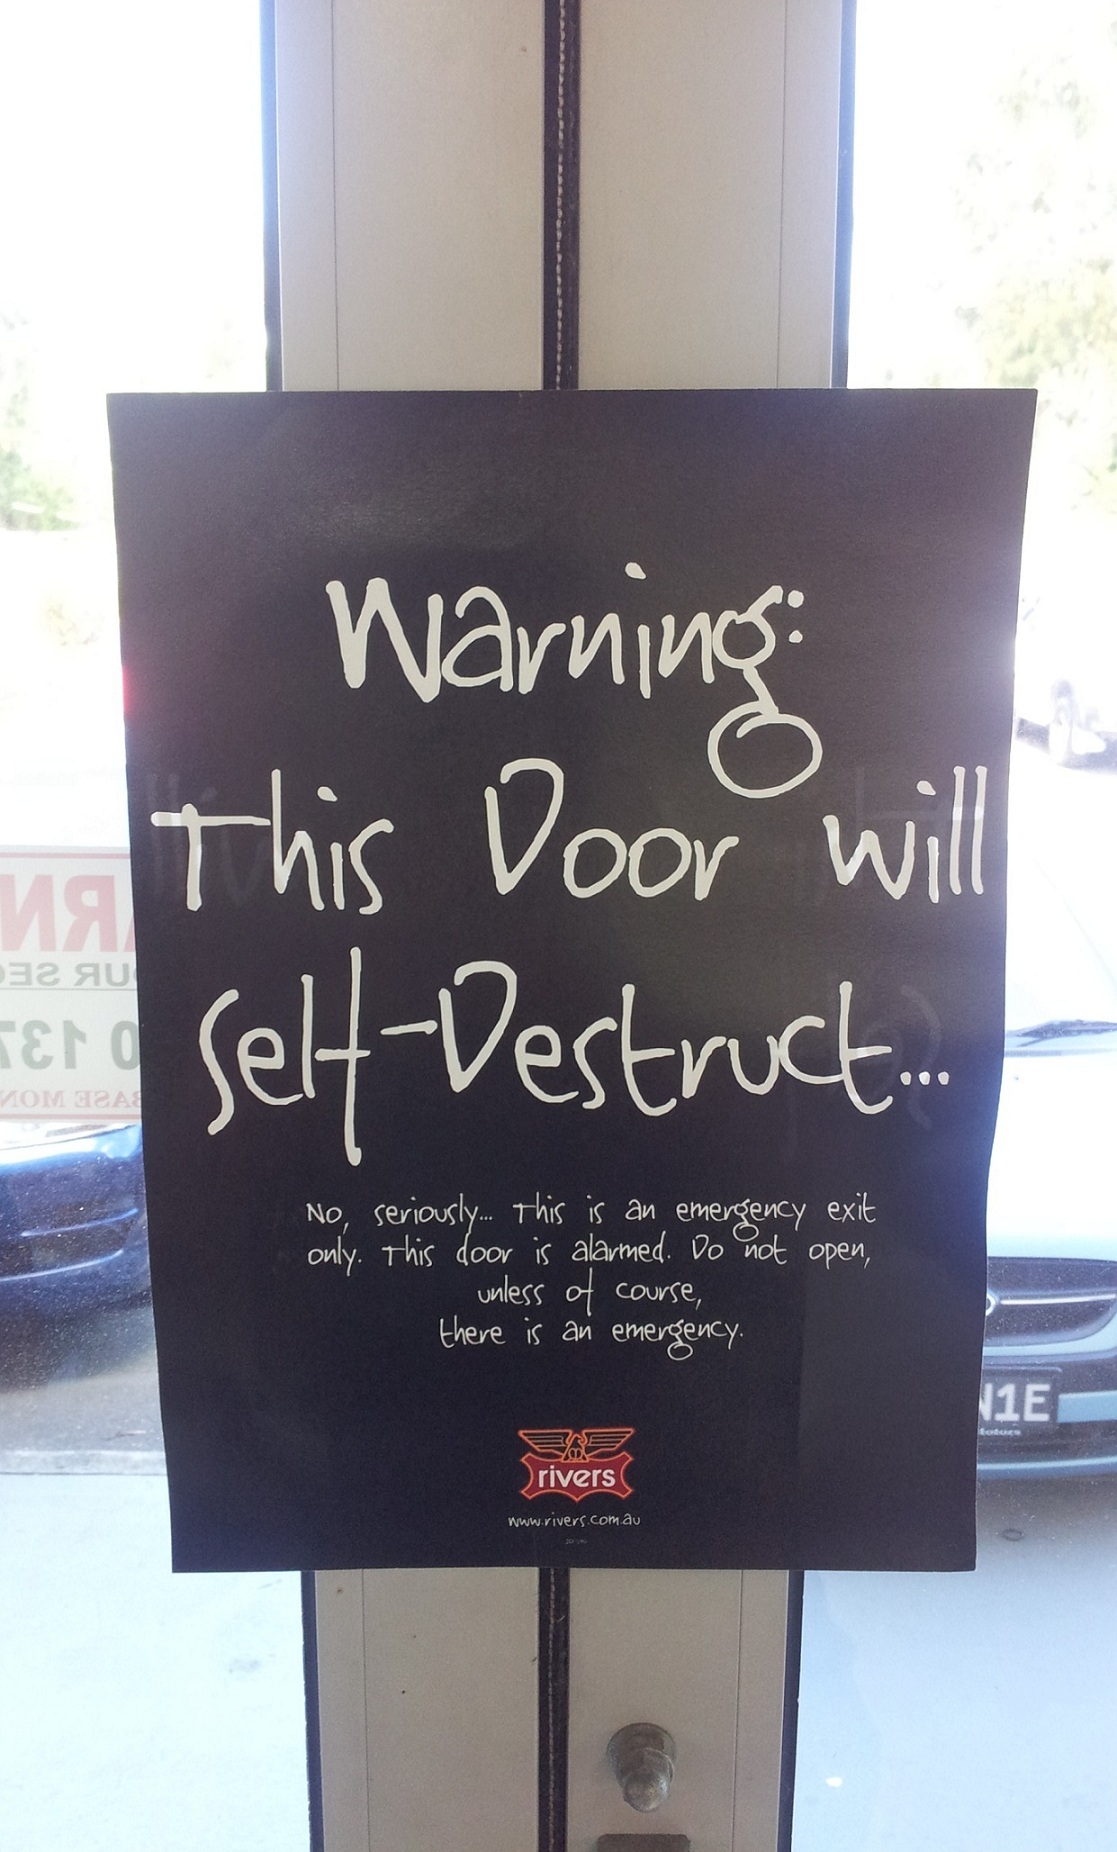 Warning:
This Door will
Self-Destruct...
No, seriously... This is an emergency exit
only. This door is alarmed. Do not open,
unless of course,
there is an emergency.
rivers
www.rivers.com.au
ARN
OUR SEC
0 137
BASE MON
N1E